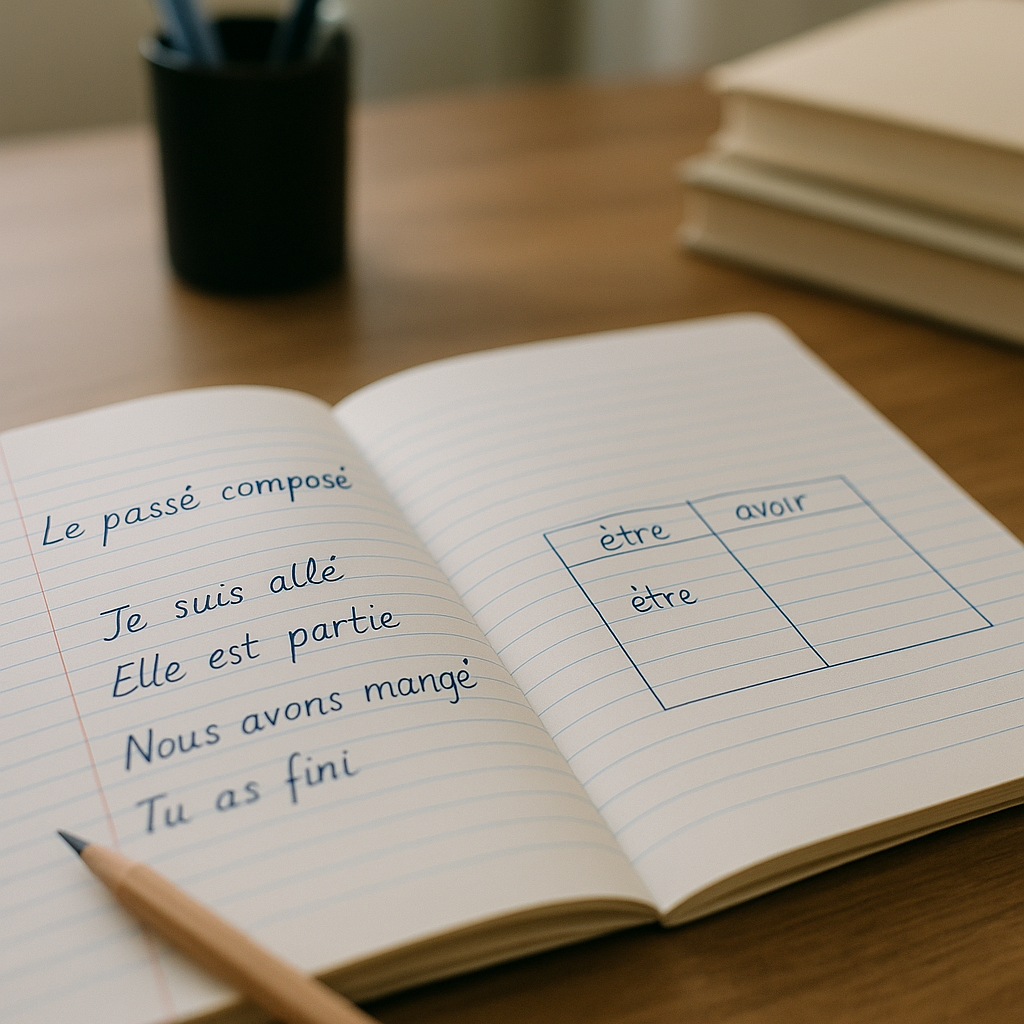 Le passé composé
Je suis allé
Elle est partie
Nous avons mangé
Tu as fini
ètre avoir
ètre